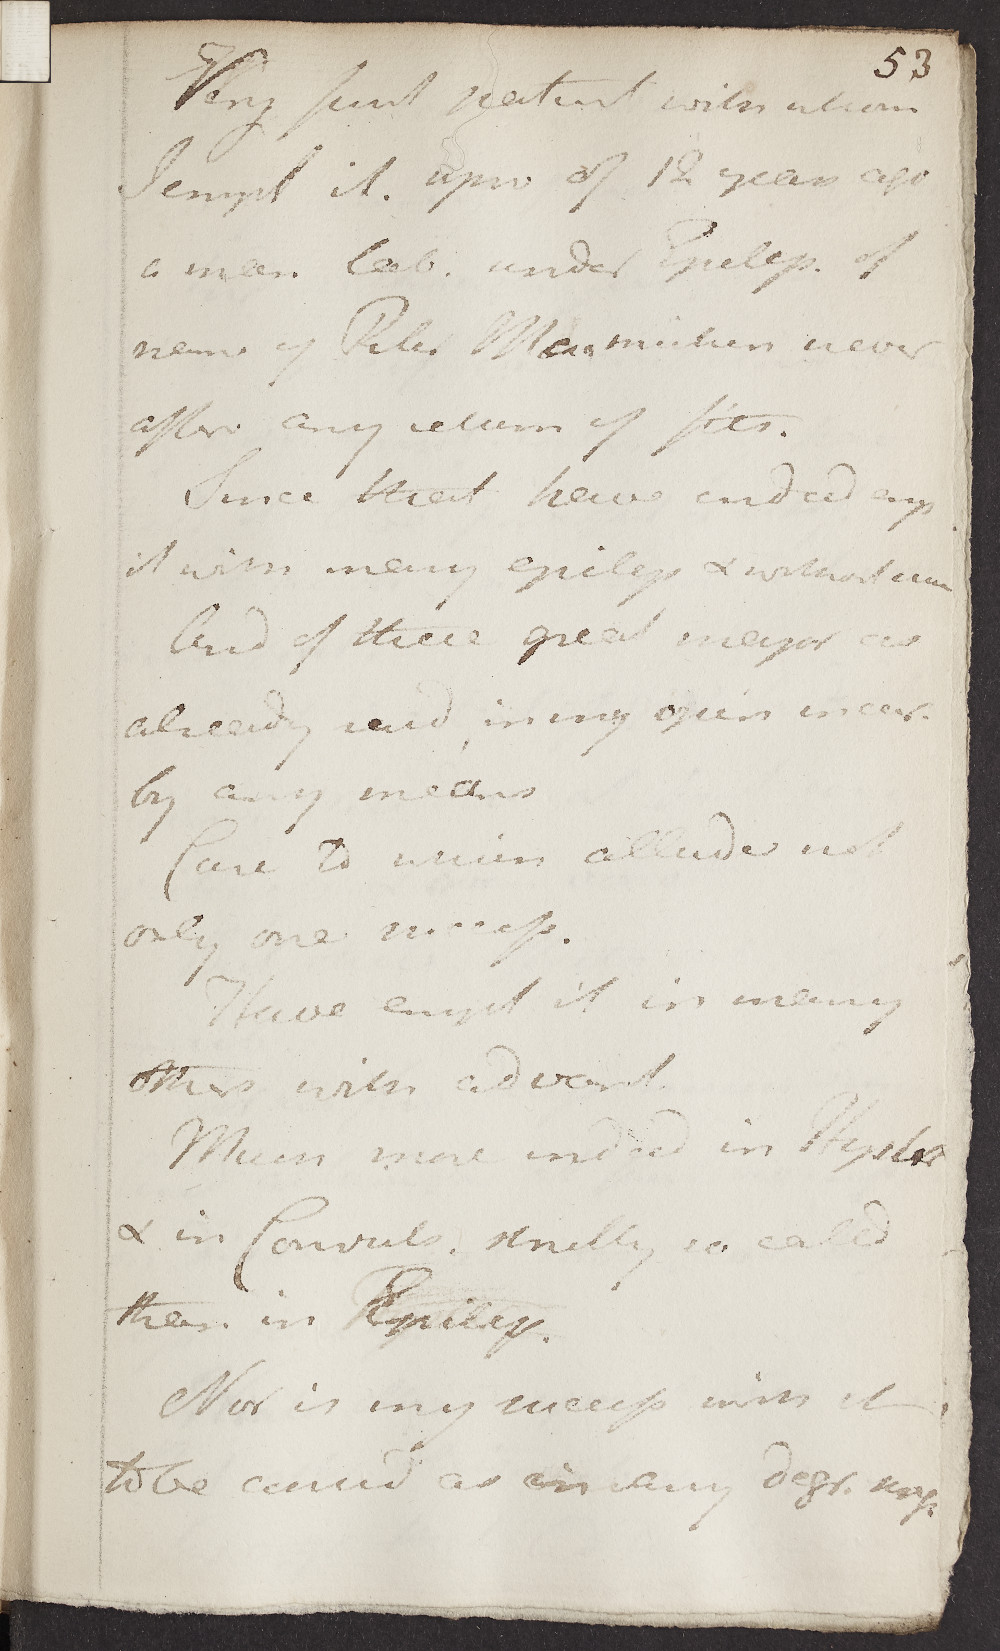 53
Very first patient with whom
I empl it. upw of 12 years ago
a man lab. under Epilep. of
name of Peter Macmillan never
after any return of fits.
Since that have indeed emp
it with many epilep & without
And of these great major as
already said in my opin incur.
by any means
Case to which allude not
only one success.
Have empd it in many
others with advant.
Much more indeed in Hyster
& in Convuls. strictly so called
than in Epilep.
Nor is my success with it
to be consid as in any degr.